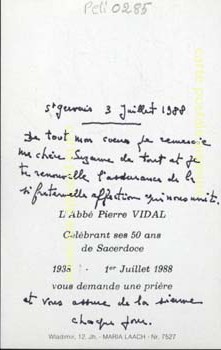 Pcli 0285
St Gervais 3 Juillet 1988
De tout mon coeur je remercie
ma chère Suzanne de tout et je
te renouvelle l'assurance de la
si fraternelle affection qui nous unit.
L'Abbé Pierre VIDAL
Célébrant ses 50 ans
de Sacerdoce
1938 - 1er Juillet 1988
vous demande une prière
et vous assure de la sienne
chaque jour.
Wladimir, 12. Jh. - MARIA LAACH - Nr. 7527